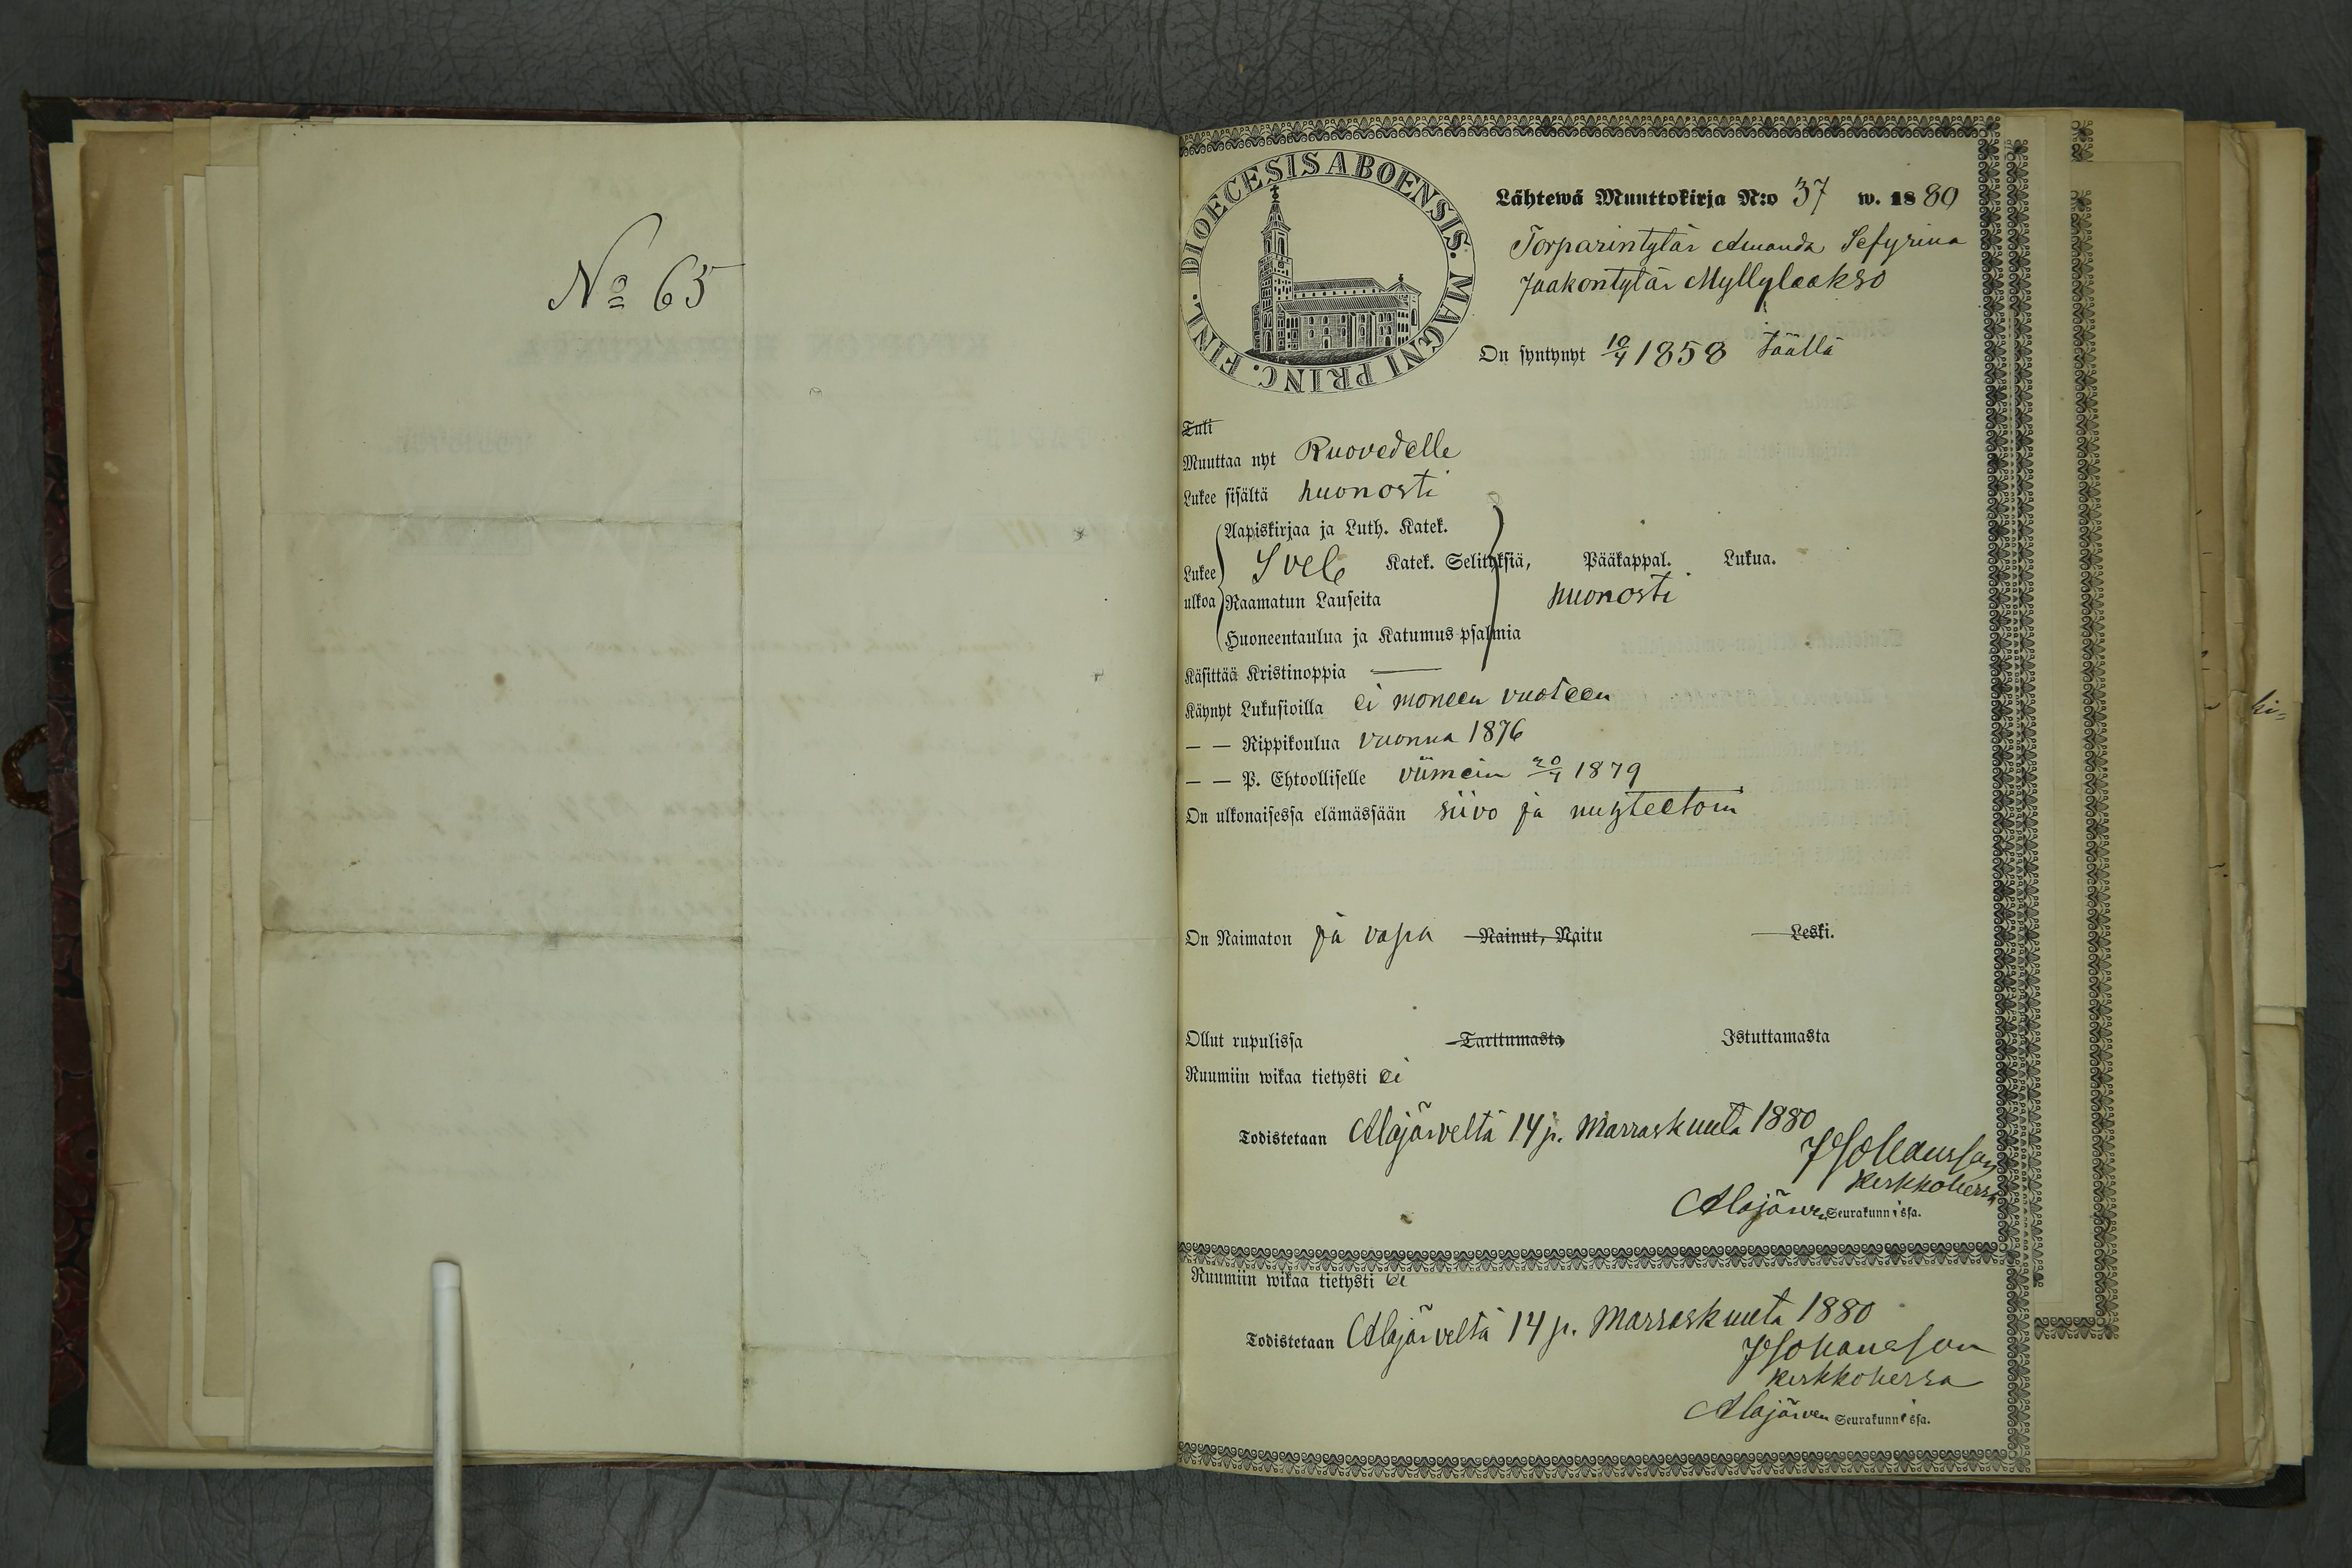 No 65
DIOECESIS ABOENSIS. MAGNI PRINC. FINL.
Lähtewä Muuttokirja N:o 37 w. 1880
Torparintytär Amanda Sefyrina
Jaakontytär Myllylaakso
On syntynyt 10/4 1858 täällä
Tuli
Muuttaa nyt Ruovedelle
Lukee sisältä huonosti
Aapiskirjaa ja Luth. Katek.
Lukee Svel Katek. Selityksiä, Pääkappal. Lukua.
ulkoa Raamatun Lauseita huonosti
Huoneentaulua ja Katumus-psalmia
Käsittää Kristinoppia —
Käynyt Lukusioilla ei moneen vuoteen
— — Rippikoulua vuonna 1876
— — P. Ehtoolliselle viimein 1879
On ulkonaisessa elämässään siivo ja nuhteetoin
On Naimaton ja vapa Nainut, Naitu Leski.
Ollut rupulissa Tarttumasta Istuttamasta
Ruumiin wikaa tietysti ei
Todistetaan Alajärveltä 14 p. Marraskuuta 1880
J Johansson
Kirkkoherra
Alajärven Seurakunnissa.
Ruumiin wikaa tietysti ei
Todistetaan Alajärveltä 14 p. Marraskuuta 1880
J Johansson
Kirkkoherra
Alajärven Seurakunnissa.